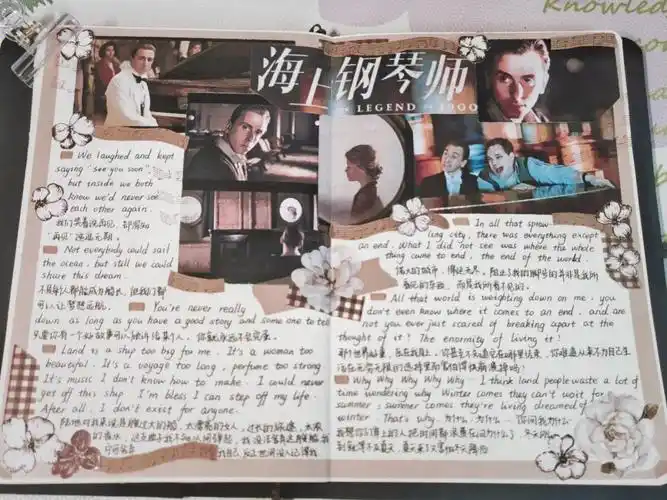 海上钢琴师
LEGEND OF 1900
Knowled
We laughed and kept
saying "see you soon",
but inside we both
know we'd never see
each other again.
我们笑着说再见，却深知
"再见"遥遥无期。
Not everybody could sail
the ocean, but still we could
share this dream.
不是每个人都能成为船长，但我们都
可以让梦想远航。
You're never really
down as long as you have a good story and some one to tell
只要你有一个好故事可以倾诉给某个人，你就永远不会完蛋。
Land is a ship too big for me. It's a woman too
beautiful. It's a voyage too long, perfume too strong.
It's music I don't know how to make. I could never
get off this ship I'm bless I can step off my life.
After all, I don't exist for anyone.
陆地对我来说是艘过大的船，太漂亮的女人，过长的旅途，太浓
的香水，
In all that spraw-
ling city, there was everything except
an end. What I did not see was where the whole
thing came to end, the end of the world.
偌大的城市，绵延无尽。阻止我的脚步的并非是我所
看见的东西，而是我所看不见的。
All that world is weighting down on me, you
don't even know where it comes to an end, and are
not you ever just scared of breaking apart at the
thought of it? The enormity of living it!
Why Why Why Why Why. I think land people waste a lot of
time wondering why. Winter comes they can't wait for
summer; summer comes they're living dreamed of
winter. That's why.